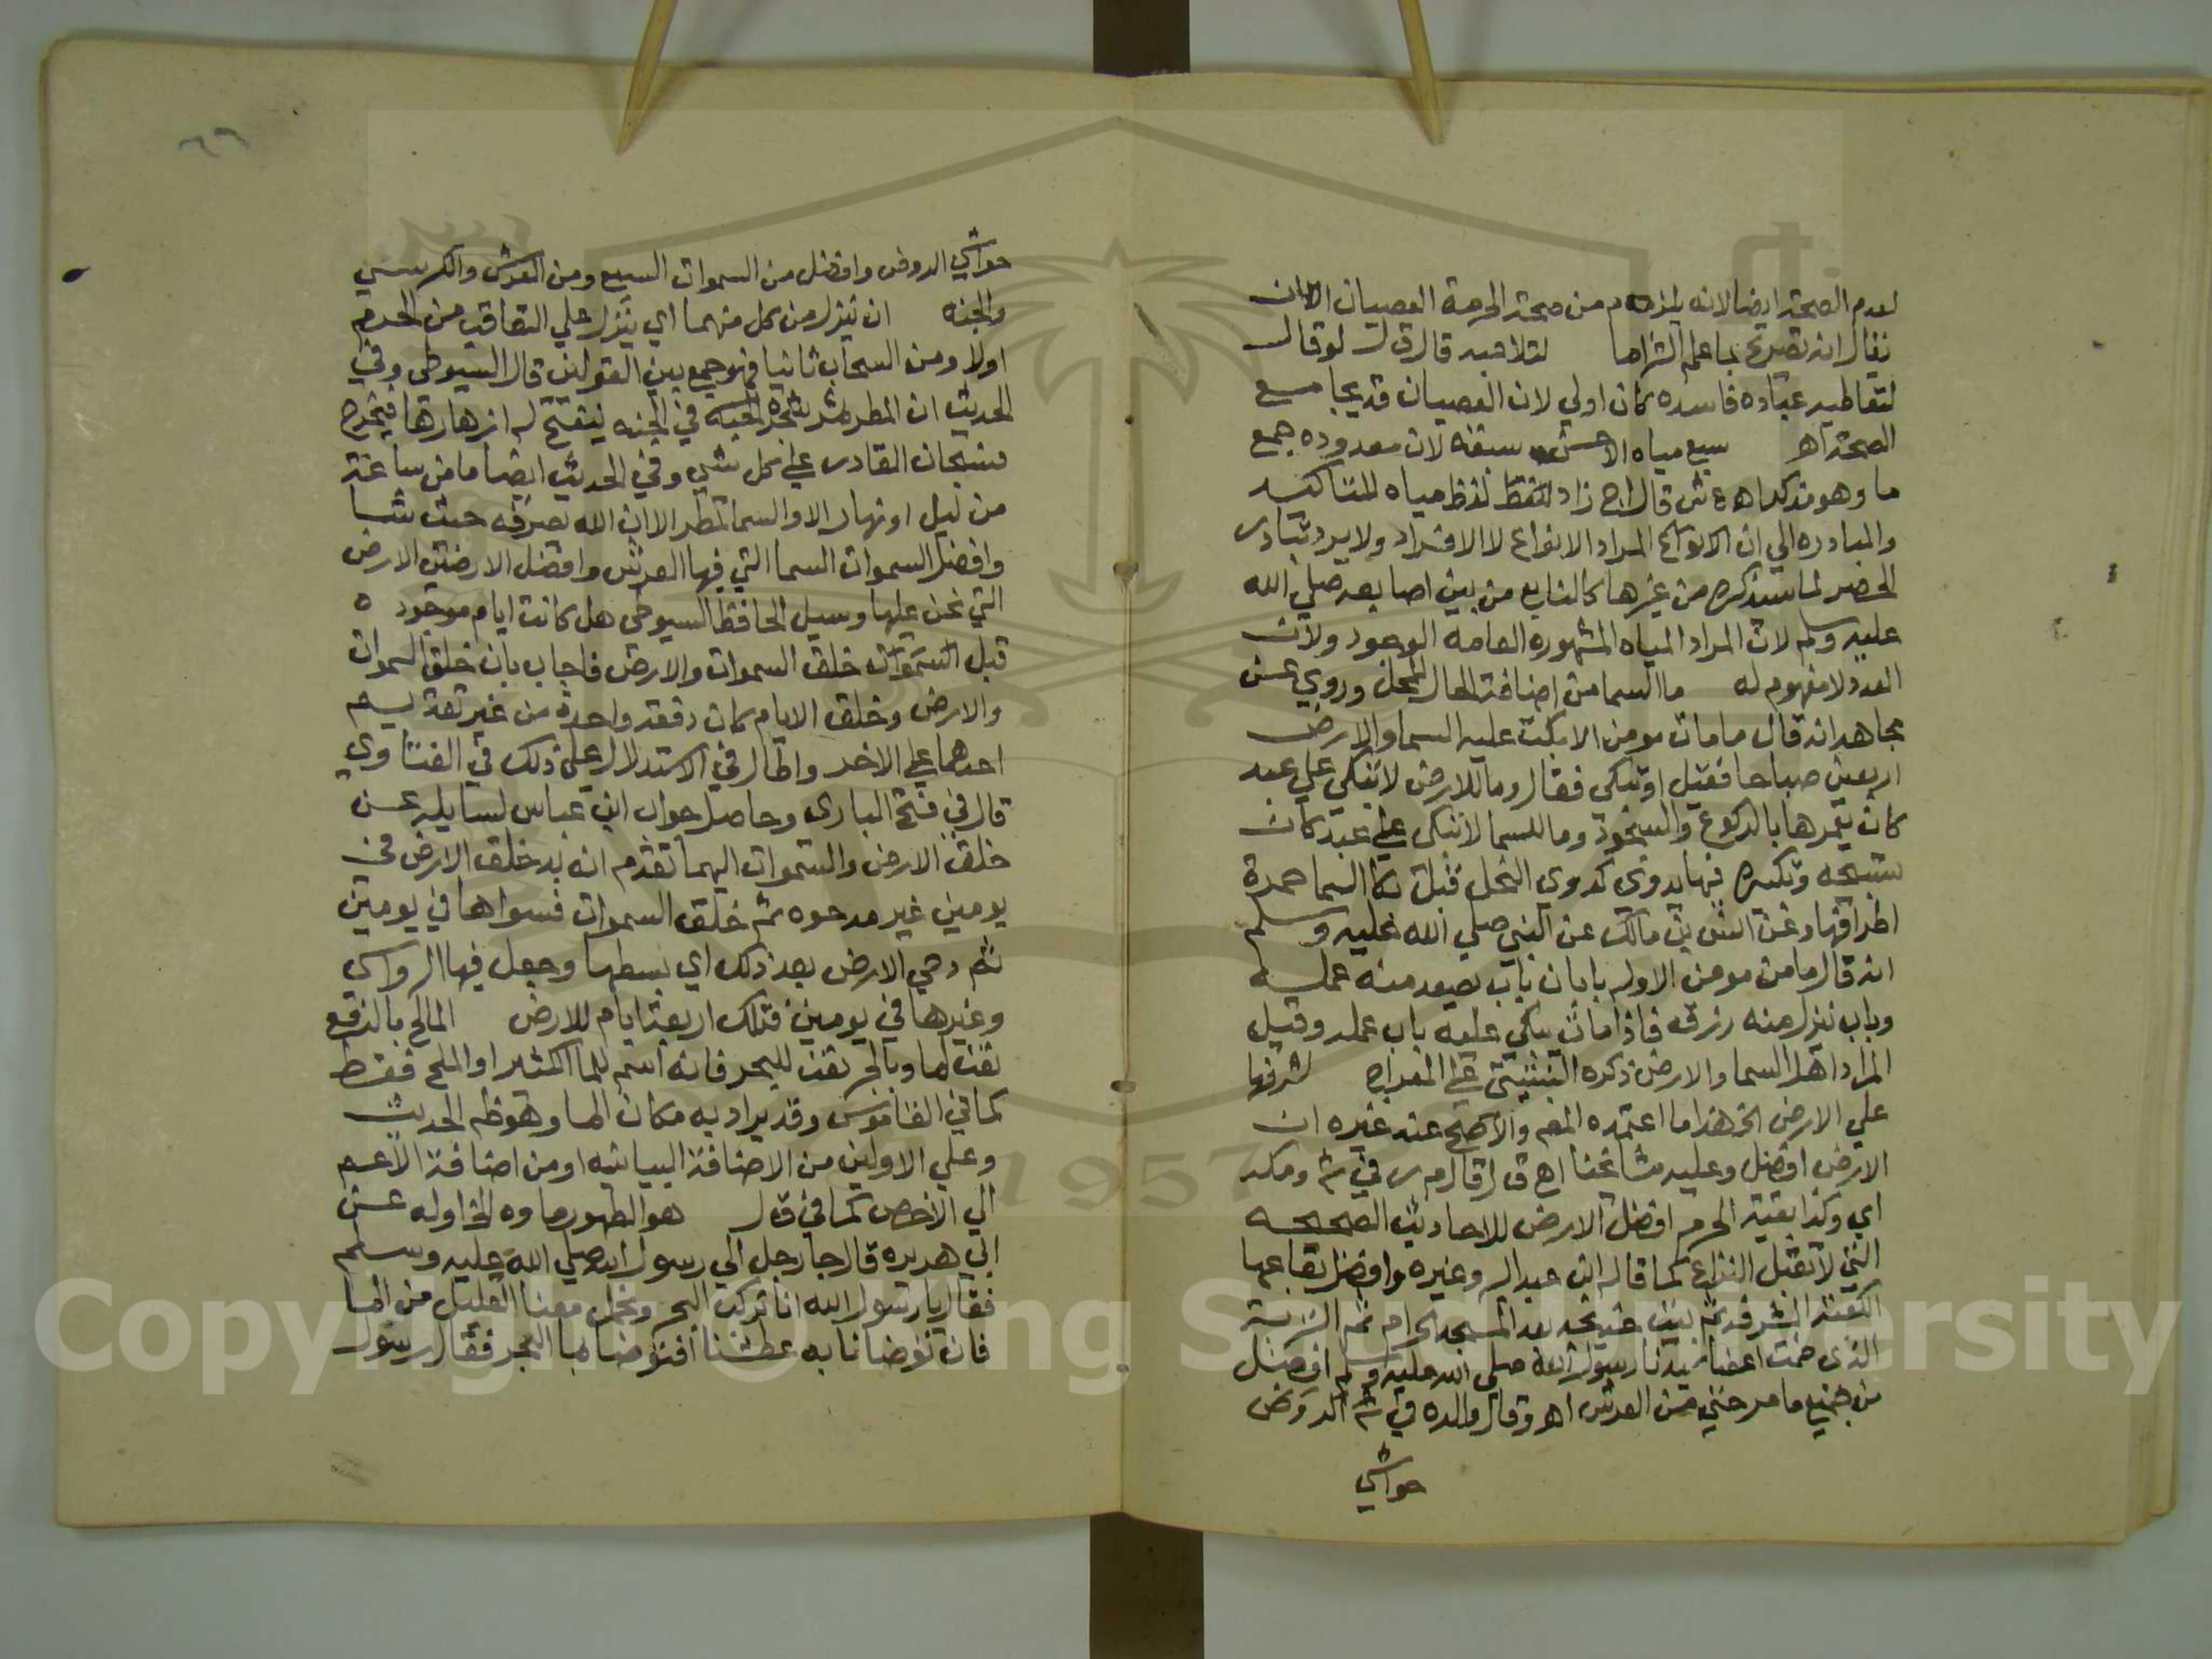 لعدم الصحة ايضا لانه يلزم من صحة الحرمة العصيان الا ان
يقال انه تصريح بما علم التزاما لتلاعبه قال ق ل لو قال
لتعاطيه عبادة فاسده كان اولي لان العصيان قد يجامع
الصحة اهـ سبع مياه الاحسن سبعة لان معدوده جمع
ما وهو مذكر اهـ ع ش قال اج زاد لفظ مياه للتاكيد
والمبادره الي ان المراد الانواع لا الافراد ولا يرد تبادر
الحصر لما سنذكره من غيرها كالنابع من بين اصابعه صلي الله
عليه وسلم لان المراد المياه المشهوره العامه الوجود ولان
العدد لا مفهوم له ما السما من اضافة الحال للمحل وروي عن
مجاهد انه قال ما مات مومن الا بكت عليه السما والارض
اربعين صباحا فقيل اوتبكي فقال وما للارض لا تبكي علي عبد
كان يعمرها بالركوع والسجود وما للسما لا تبكي علي عبد كان
تسبيحه وتكبيره فيها يدوي كدوي النحل قيل بكا السما حمرة
اطرافها وعن انس بن مالك عن النبي صلي الله عليه وسلم
انه قال ما من مومن الا وله بابان باب يصعد منه عمله
وباب ينزل منه رزقه فاذا مات بكي عليه باب عمله وقيل
المراد اهل السما والارض ذكره الثبتيتي علي المعراج لشرفها
علي الارض الخ هذا ما اعتمده المص والاصح عند غيره ان
الارض افضل وعليه مشايخنا اهـ ق ل قال م ر في ش ومكه
اي وكذا بقية الحرم افضل الارض للاحاديث الصحيحه
التي لا تقبل النزاع كما قاله ابن عبد البر وغيره وافضل بقاعها
الكعبة المشرفه ثم بيت خديجه بعد المسجد الحرام ثم التربة
التي ضمت اعضا سيدنا رسول الله صلي الله عليه وسلم افضل
من جميع ما مر حتي من العرش اهـ وقال والده في ش الروض
حواشي
حواشي الروض وافضل من السموات السبع ومن العرش والكرسي
والجنه ان ينزل من كل منهما اي ينزل علي التعاقب من الجرم
اولا ومن السحاب ثانيا فهو جمع بين القولين قال السيوطي وفي
الحديث ان المطر شجره في الجنه
فسبحان القادر علي كل شي وفي الحديث ايضا ما من ساعة
من ليل او نهار الا والسما تمطر الا ان الله يصرفه حيث شا
وافضل السموات السما التي فيها العرش وافضل الارضين الارض
التي نحن عليها وسيل الحافظ السيوطي هل كانت ايام موجوده
قبل خلق السموات والارض فاجاب بان خلق السموات
والارض وخلق الايام كان دفعة واحدة من غير تقديم
احدهما علي الاخر واطال في الاستدلال علي ذلك في الفتاوي
قال في فتح الباري وحاصل جواب ابن عباس لسايله عن
خلق الارض والسموات ايهما تقدم انه بد خلق الارض في
يومين غير مدحوه ثم خلق السموات فسواها في يومين
ثم دحي الارض بعد ذلك اي بسطها وجعل فيها الرواسي
وغيرها في يومين فتلك اربعة ايام للارض المالح بالرفع
نعت لما وبالجر نعت للبحر فانه اسم للما الكثير او الملح فقط
كما في القاموس وقد يراد به مكان الما وهو ظم الحديث
وعلي الاولين من الاضافة البيانيه او من اضافة الاعم
الي الاخص كما في ق ل هو الطهور ماوه الخ اوله عن
ابي هريره قال جا رجل الي رسول الله صلي الله عليه وسلم
فقال يا رسول الله انا نركب البحر ونحمل معنا القليل من الما
فان توضانا به عطشنا افنتوضا بما البحر فقال رسول